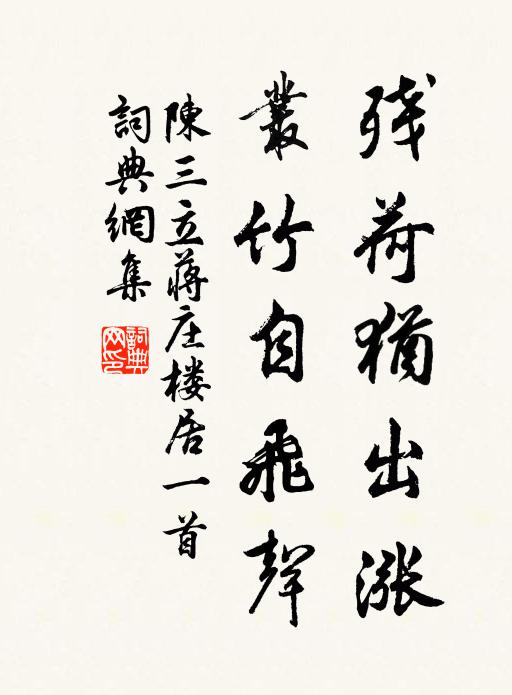 残荷猶出漲
叢竹自飛聲
陳三立蔣庄楼居一首
詞典網集
詞典网印